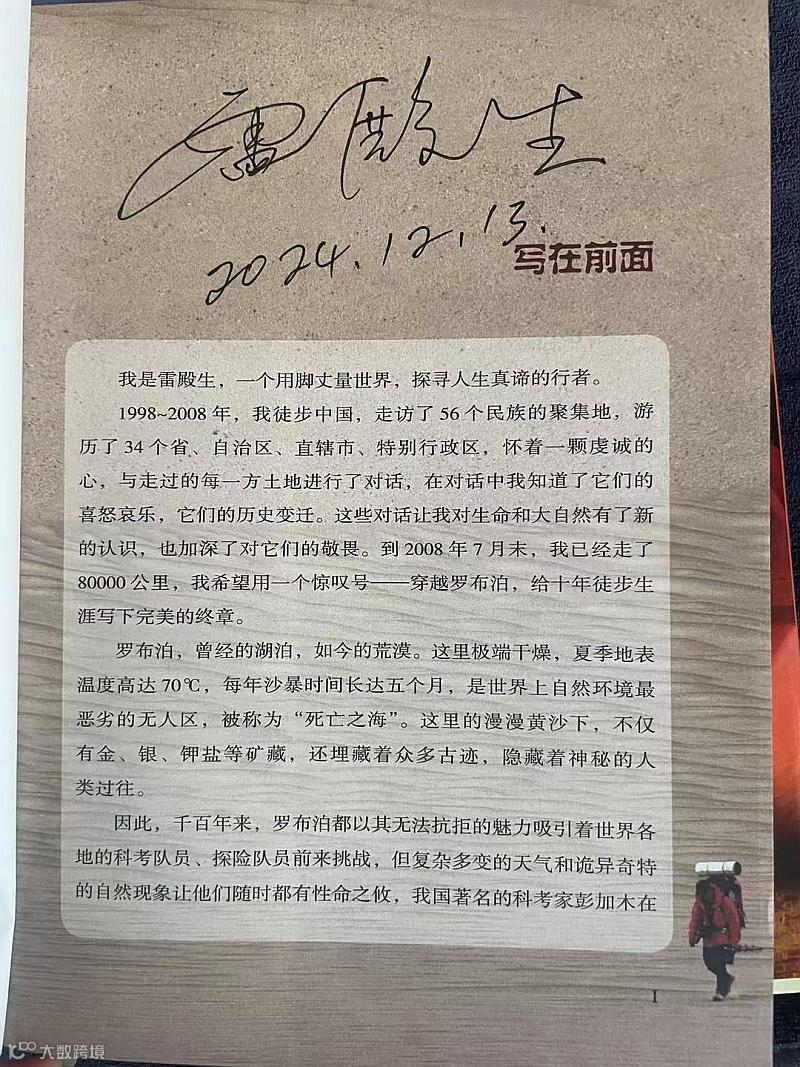 雷殿生
2024.12.13.
写在前面
我是雷殿生，一个用脚丈量世界，探寻人生真谛的行者。
1998~2008年，我徒步中国，走访了56个民族的聚集地，游
历了34个省、自治区、直辖市、特别行政区，怀着一颗虔诚的
心，与走过的每一方土地进行了对话，在对话中我知道了它们的
喜怒哀乐，它们的历史变迁。这些对话让我对生命和大自然有了新
的认识，也加深了对它们的敬畏。到2008年7月末，我已经走了
80000公里，我希望用一个惊叹号——穿越罗布泊，给十年徒步生
涯写下完美的终章。
罗布泊，曾经的湖泊，如今的荒漠。这里极端干燥，夏季地表
温度高达70℃，每年沙暴时间长达五个月，是世界上自然环境最
恶劣的无人区，被称为“死亡之海”。这里的漫漫黄沙下，不仅
有金、银、钾盐等矿藏，还埋藏着众多古迹，隐藏着神秘的人
类过往。
因此，千百年来，罗布泊都以其无法抗拒的魅力吸引着世界各
地的科考队员、探险队员前来挑战，但复杂多变的天气和诡异奇特
的自然现象让他们随时都有性命之攸，我国著名的科考家彭加木在
I
大数跨境